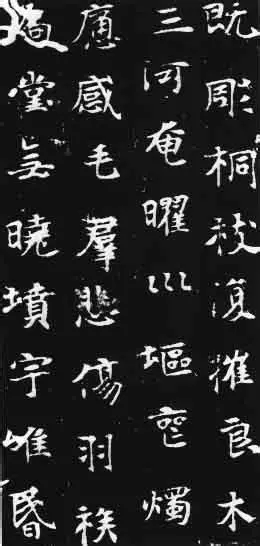 既彫桐枝復摧良木
三河奄曜巛塸喪燭
感毛羣悲傷羽族
堂無曉墳宇唯昏